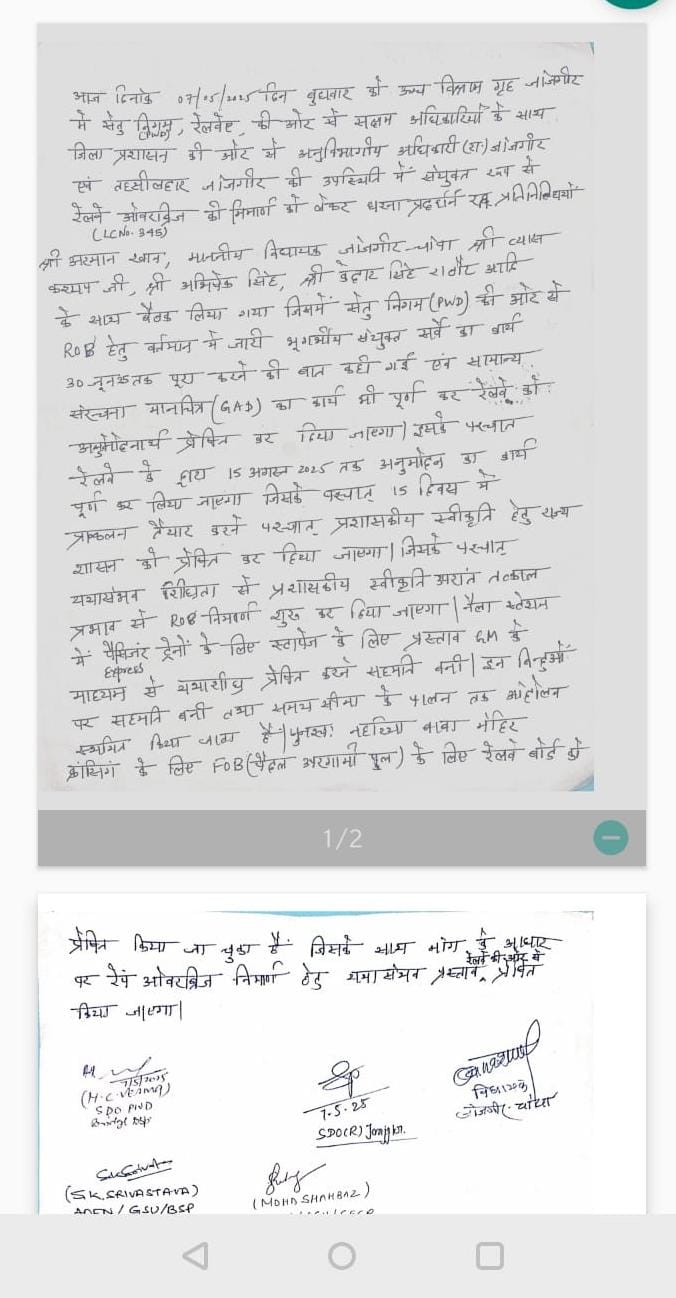 आज दिनांक 07/05/2025 दिन बुधवार को उच्च विश्राम गृह जांजगीर
में सेतु निगम, रेलवे, की ओर से सक्षम अधिकारियों के साथ
(PWD)
जिला प्रशासन की ओर से अनुविभागीय अधिकारी (रा.) जांजगीर
एवं तहसीलदार जांजगीर की उपस्थिति में संयुक्त रूप से
रेलवे ओवरब्रिज की निर्माण को लेकर धरना प्रदर्शन रत प्रतिनिधियों
(LC No. 345)
श्री अरमान खान, माननीय विधायक जांजगीर-चांपा श्री व्यास
कश्यप जी, श्री अभिषेक सिंह, श्री सिंह राठौर आदि
के साथ बैठक लिया गया जिसमें सेतु निगम (PWD) की ओर से
ROB हेतु वर्तमान में जारी भूगर्भीय संयुक्त सर्वे का कार्य
30 जून तक पूरा करने की बात कही गई एवं सामान्य
संरचना मानचित्र (GAD) का कार्य भी पूर्ण कर रेलवे को
अनुमोदनार्थ प्रेषित कर दिया जाएगा। इसके पश्चात
रेलवे के द्वारा 15 अगस्त 2025 तक अनुमोदन का कार्य
पूर्ण कर लिया जाएगा जिसके पश्चात् 15 दिवस में
प्राक्कलन तैयार करने पश्चात् प्रशासकीय स्वीकृति हेतु राज्य
शासन को प्रेषित कर दिया जाएगा। जिसके पश्चात्
यथासंभव शीघ्रता से प्रशासकीय स्वीकृति उपरांत तत्काल
प्रभाव से ROB निर्माण शुरू कर दिया जाएगा। नैला स्टेशन
में पैसेंजर ट्रेनों के लिए स्टापेज के लिए प्रस्ताव GM के
Express
माध्यम से यथाशीघ्र प्रेषित करने सहमति बनी। इन बिन्दुओं
पर सहमति बनी तथा समय सीमा के पालन तक आंदोलन
स्थगित किया जाता है। पुनश्च: नहरिया बाबा मंदिर
क्रासिंग के लिए FOB (पैदल पुल) के लिए रेलवे बोर्ड को
1/2
प्रेषित किया जा चुका है जिसके साथ मांग के आधार
रेलवे की ओर से
पर ओवरब्रिज निर्माण हेतु यथासंभव प्रस्ताव प्रेषित
किया जाएगा।
7/5/2025
(H.C. VERMA)
SDO PWD
Bridge
7.5.25
SDO(R) Janjgir
विधायक
जांजगीर-चांपा
(S.K. SRIVASTAVA)
ADEN/GSU/BSP
(MOHD SHAHBAZ)